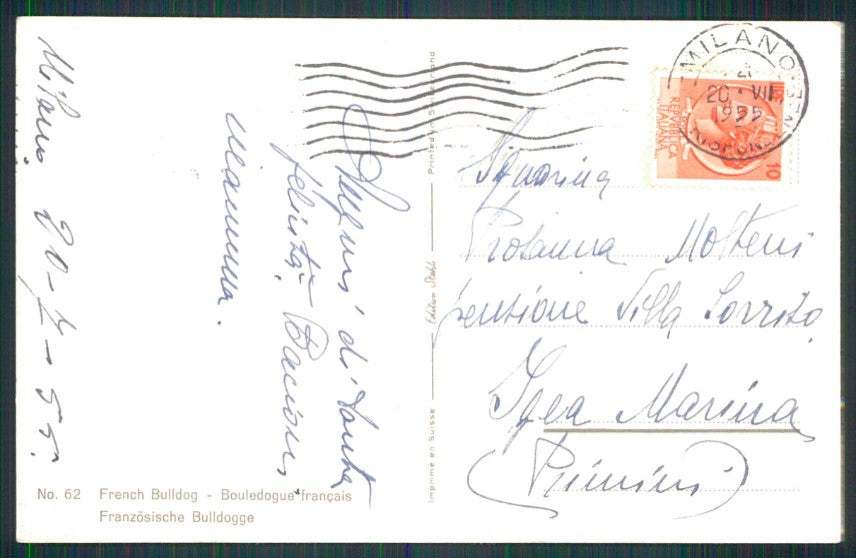 Milano 20-7-55.
Auguri di tanta
felicità. Bacioni,
Mamma.
No. 62 French Bulldog - Bouledogue français
Französische Bulldogge
Imprimé en Suisse — Edition Stehli — Printed in Switzerland
MILANO
21
20 · VII
1955
REPVBBLICA
ITALIANA
10
Signorina
Rosanna Molteni
pensione Villa Sorriso
Igea Marina
(Rimini)